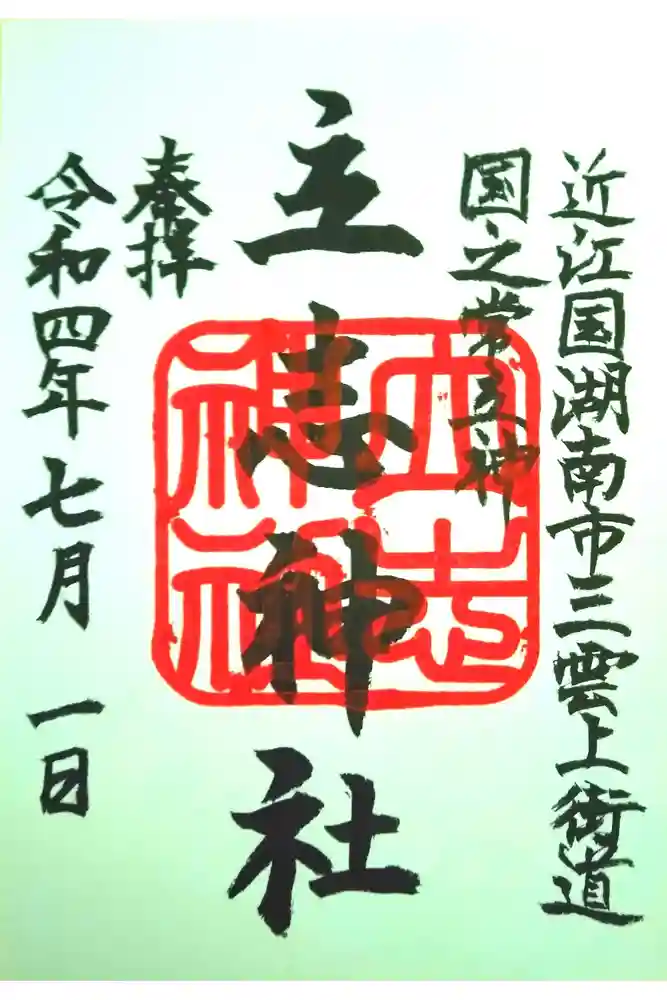 近江国湖南市三雲上街道
国之常立神
立志神社
立志
神社
奉拝
令和四年七月 一日